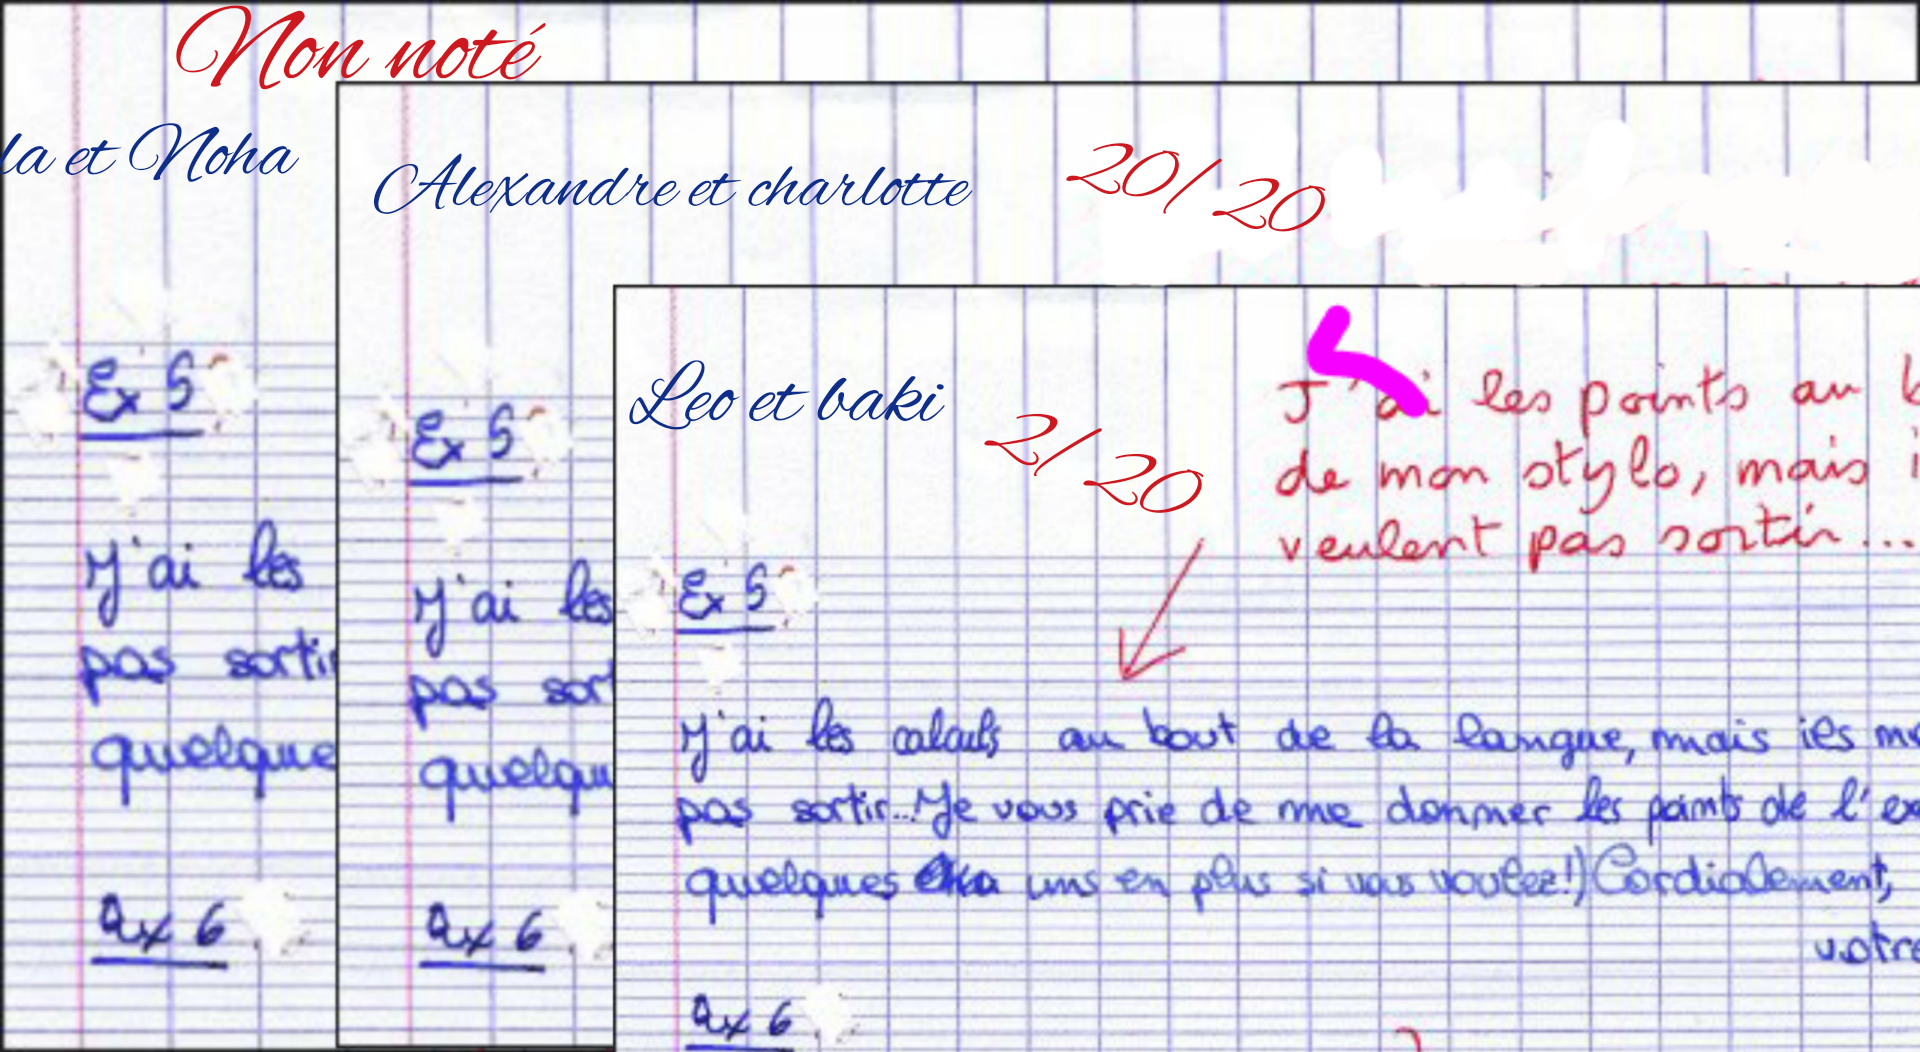 Non noté
la et Noha
Ex 5
J'ai les
pas sortir
quelque
Ex 6
Alexandre et charlotte
20/20
Ex 5
J'ai les
pas sor
quelqu
Ex 6
Leo et baki
2/20
J'ai les points au b
de mon stylo, mais i
veulent pas sortir...
Ex 5
J'ai les calculs au bout de la langue, mais ils me
pas sortir... Je vous prie de me donner les points de l'ex
quelques uns en plus si vous voulez!) Cordialement,
votre
Ex 6